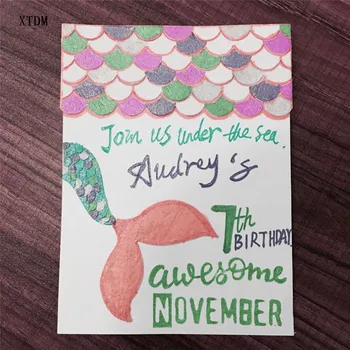 XTDM
Join us under the sea.
Audrey's
7th
BIRTHDAY
awesome
NOVEMBER